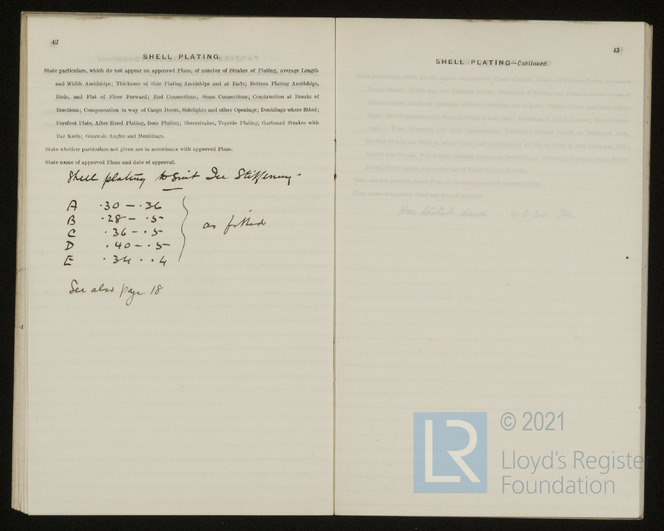 42
SHELL PLATING.
State particulars, which do not appear on approved Plans, of number of Strakes of Plating, average Length
and Width Amidships; Thickness of Side Plating Amidships and at Ends; Bottom Plating Amidships,
Ends, and Flat of Floor Forward; End Connections; Seam Connections; Construction at Breaks of
Erections; Compensation in way of Cargo Doors, Sidelights and other Openings; Doublings where fitted;
Forefoot Plate, After Hood Plating, Boss Plating; Sheerstrakes, Topside Plating, Garboard Strakes with
Bar Keels; Gunwale Angles and Mouldings.
State whether particulars not given are in accordance with approved Plans.
State name of approved Plans and date of approval.
Shell plating to Suit Ice Stiffening.
A .30 - .36
B .28 - .5
C .36 - .5
D .40 - .5
E .34 - .4
as fitted
See also page 18
43
SHELL PLATING—Continued.
© 2021
LR
Lloyd's Register
Foundation